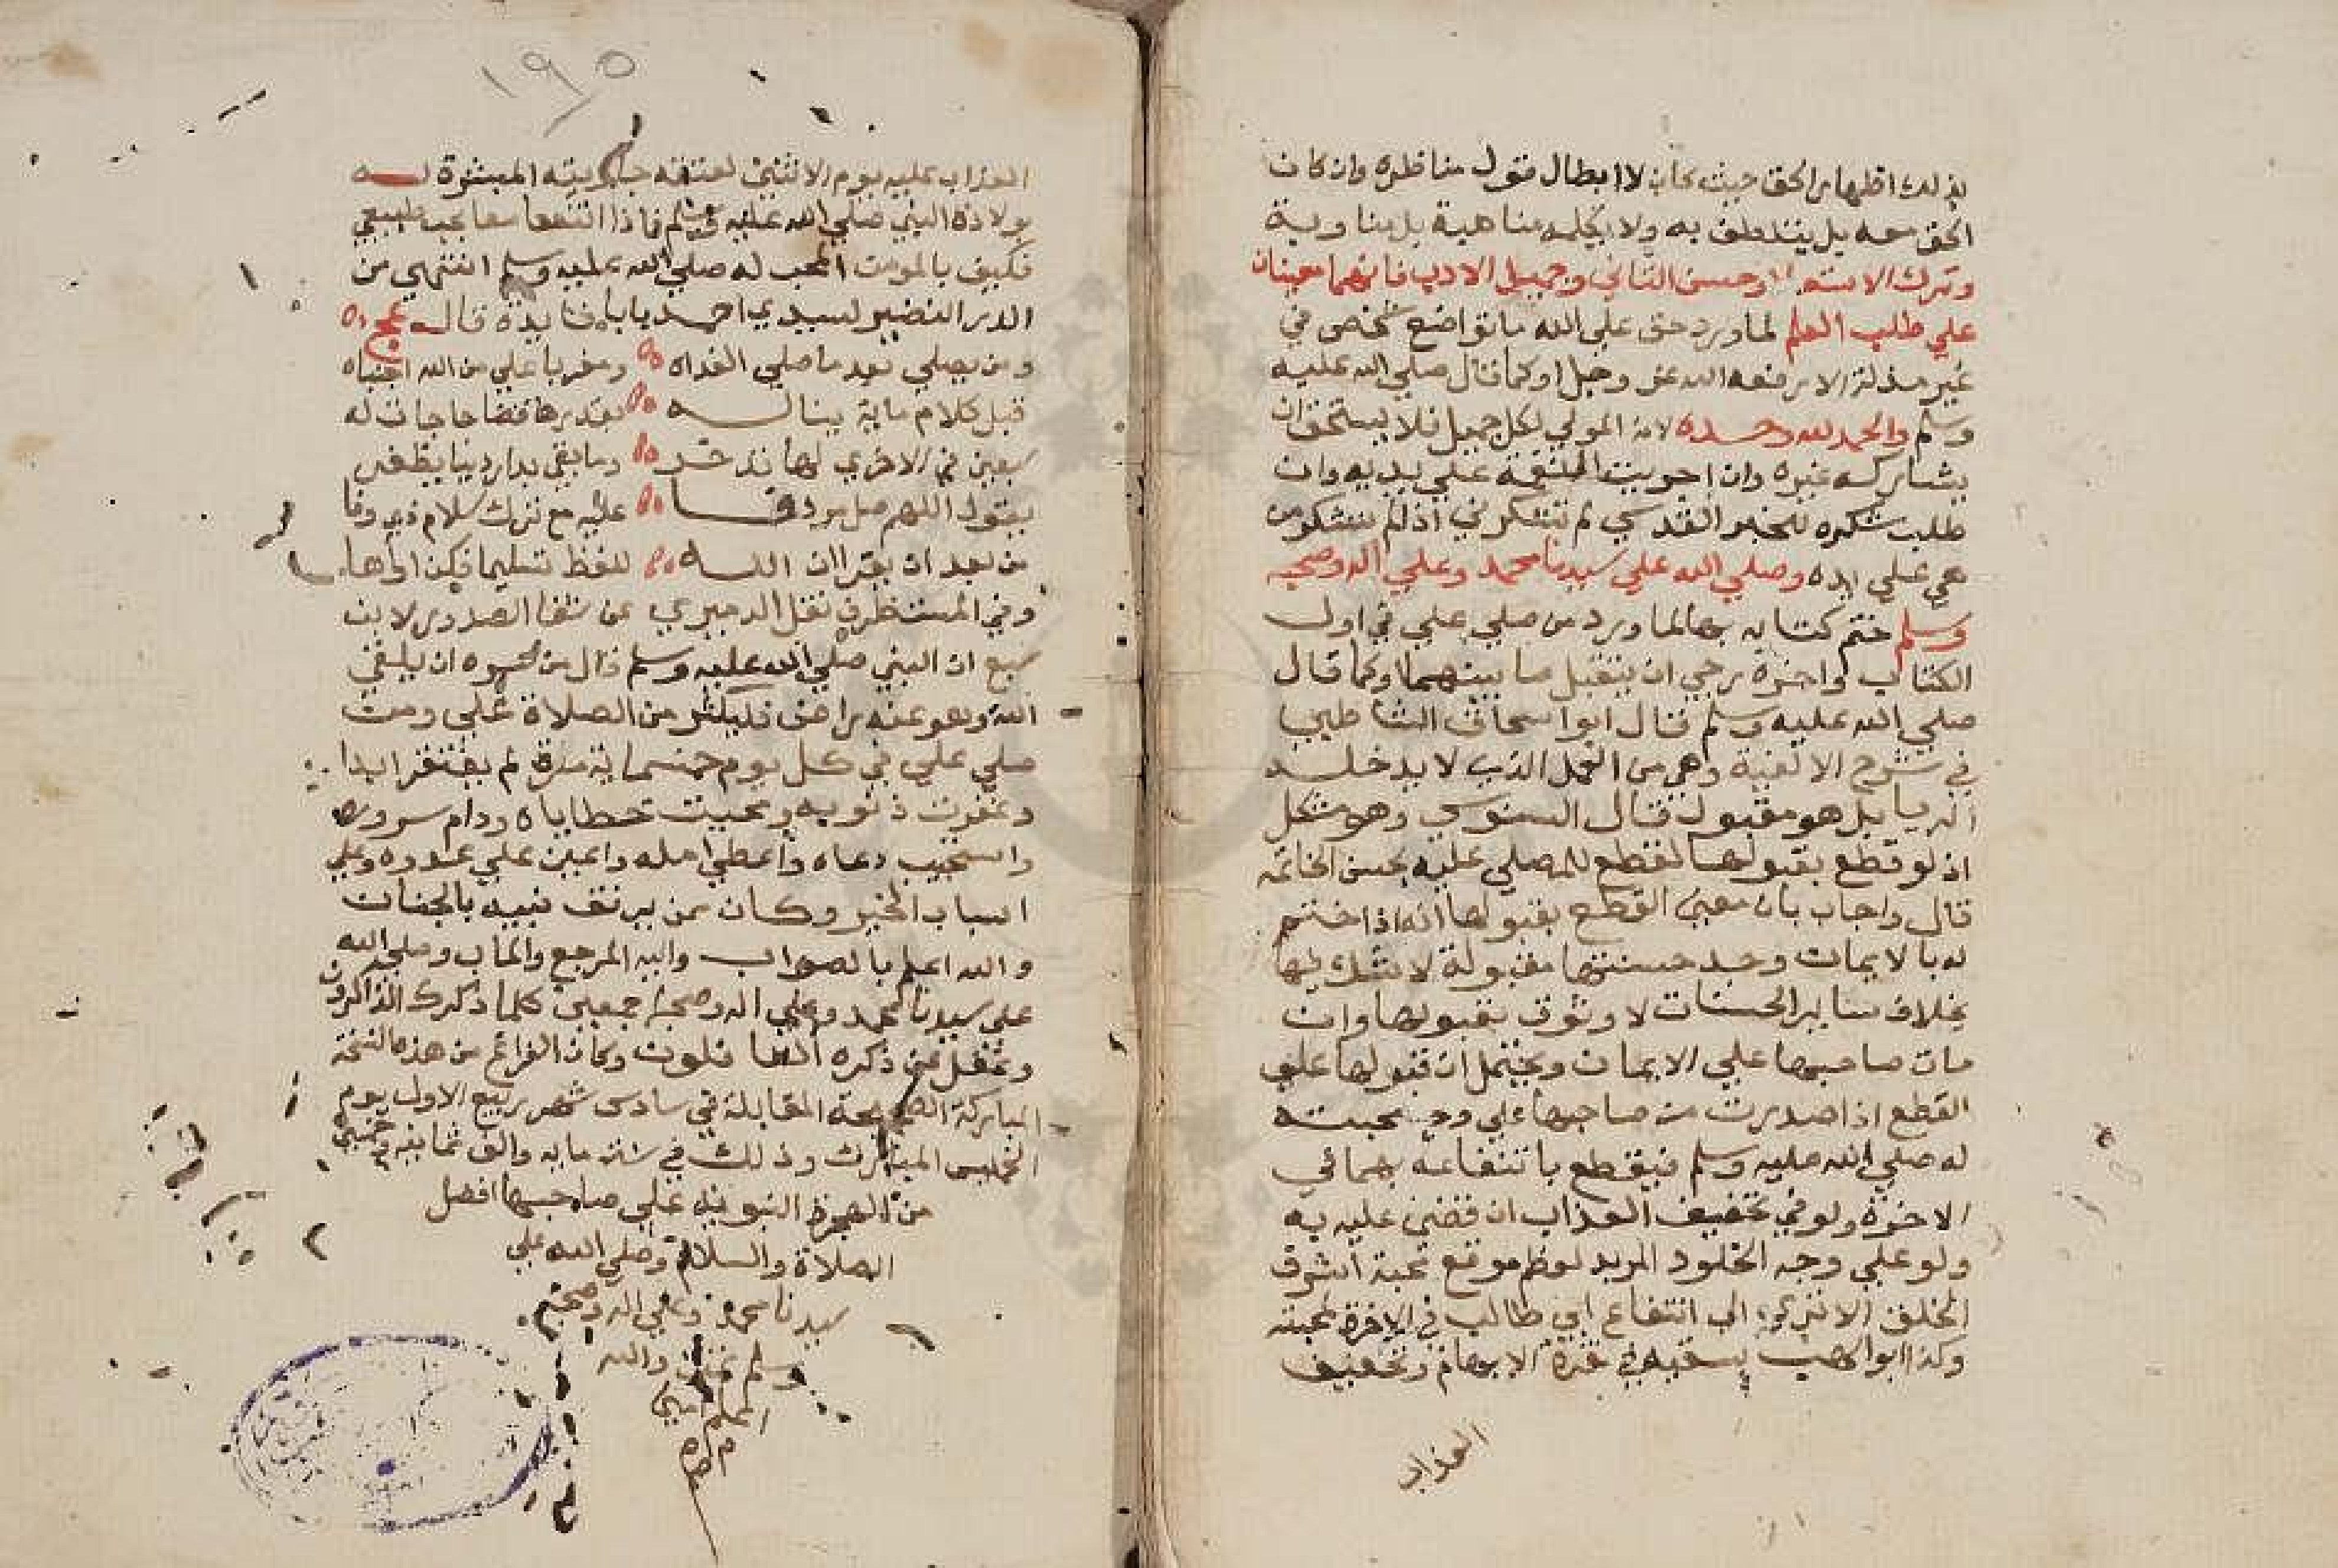 بذلك اظهار الحق حيث كان لا ابطال قول مناظره وان كان
الحق معه بل يتلطف به ولا يكلمه مناهية بل مناوبة
وترك الاستعـ وحسن التاني وجميل الادب فانهما معينان
علي طلب العلم لما ورد حق علي الله ما تواضع شخص في
غير مذلة الا رفعه الله عز وجل او كما قال صلي الله عليه
وسلم والحمد لله وحده لانه المولي لكل جميل فلا يستحق ان
يشاركه غيره وان اجريت المنفعة علي يديه وان
طلب شكره للخبر القدسي لم تشكرني اذ لم تشكر من
هي علي يده وصلي الله علي سيدنا محمد وعلي اله وصحبه
وسلم ختم كتابه بها لما ورد من صلي علي في اول
الكتاب واخره رجي ان يتقبل ما بينهما او كما قال
صلي الله عليه وسلم قال ابو اسحاق الشاطبي
في شرح الالفية وهي من العمل الذي لا يدخله
الريا بل هو مقبول قال السنوسي وهو مشكل
اذ لو قطع بقبولها لقطع للمصلي عليه بحسن الخاتمة
قال واجاب بان معني القطع بقبولها انه اذا ختم
له بالايمان وجد حسنتها مقبولة لا شك فيها
بخلاف سائر الحسنات لا وثوق بقبولها وان
مات صاحبها علي الايمان ويحتمل ان قبولها علي
القطع اذا صدرت من صاحبها علي وجه محبته
له صلي الله عليه وسلم فيقطع بانتفاعه بها في
الاخرة ولو في تخفيف العذاب ان قضي عليه به
ولو علي وجه الخلود المربد لعظم موقع محبة اشرف
الخلق الا تري الي انتفاع ابي طالب في الاخرة لمحبته
وكذا ابو لهب بسقيه في نقرة الابهام وتخفيف
العذاب
١٩٥
العذاب عليه يوم الاثنين لعتقه جاريته المبشرة له
بولادة النبي صلي الله عليه وسلم فاذا انتفعا معا بحب طبيعي
فكيف بالمومن المحب له صلي الله عليه وسلم انتهي من
الدر النضير لسيدي احمد بابا فائدة قال عج
ومن يصلي بعد ما صلي الغداه ومغربا علي من الله اجتباه
قبل كلام ماية ينالـه بعدها قضا حاجات له
سبعين في الاخري لها تدخر وما بقي بدار دنيا يظفر
يقول اللهم صل مردفا عليه مع ترك سلام ذي وفا
من بعد ان يقرا ان اللـه للفظ تسليما فكن اواها
وفي المستظرف نقل الدميري عن شفا الصدور لابن
سبع ان النبي صلي الله عليه وسلم قال من سره ان يلقي
الله وهو عنه راض فليكثر من الصلاة علي ومن
صلي علي في كل يوم خمسماية مرة لم يفتقر ابدا
وغفرت ذنوبه ومحيت خطاياه ودام سروره
واستجيب دعاه واعطي امله واعين علي عدوه وعلي
اسباب الخير وكان ممن يرافق نبيه بالجنات
والله اعلم بالصواب واليه المرجع والماب وصلي الله
علي سيدنا محمد وعلي اله وصحبه اجمعين كلما ذكرك الذاكرون
وغفل عن ذكره الغافلون وكان الفراغ من هذه النسخة
المباركة الصحيحة المقابلة في سادس شهر ربيع الاول يوم
الخميس المبارك وذلك في سنة مايه والف ثمانيه وخمسين
من الهجرة النبويه علي صاحبها افضل
الصلاة والسلام وصلي الله علي
سيدنا محمد وعلي اله وصحبه
وسلم والله
اعلم امين
م